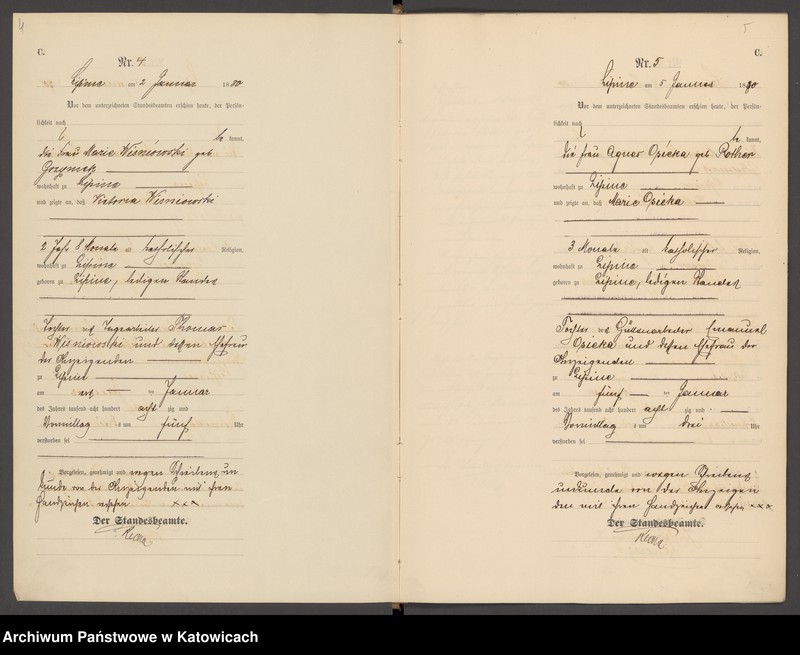 4
C.
Nr. 4
Lipine am 2 Januar 1880
Vor dem unterzeichneten Standesbeamten erschien heute, der Persön-
lichkeit nach
be kannt,
die Frau Marie Wisniowski geb
Grzymek
wohnhaft zu Lipine
und zeigte an, daß Victoria Wisniowski
2 Jahr 8 Monate alt katholischer Religion,
wohnhaft zu Lipine
geboren zu Lipine, ledigen Standes
Tochter des Thomas
Wisniowski und dessen Ehefrau
der Anzeigenden
zu Lipine
am Januar
des Jahres tausend acht hundert acht zig und
Vormittag s um fünf Uhr
verstorben sei
Vorgelesen, genehmigt und wegen Schreibens un
kunde von der Anzeigenden mit ihren
Handzeichen versehen xxx
Der Standesbeamte.
5
C.
Nr. 5
Lipine am 5 Januar 1880
Vor dem unterzeichneten Standesbeamten erschien heute, der Persön-
lichkeit nach
be kannt,
die Frau Agnes Opicka geb Rother
wohnhaft zu Lipine
und zeigte an, daß Marie Opicka
3 Monate alt katholischer Religion,
wohnhaft zu Lipine
geboren zu Lipine, ledigen Standes
Tochter des Hüttenarbeiter Emanuel
Opicka und dessen Ehefrau der
Anzeigenden
zu Lipine
am fünf Januar
des Jahres tausend acht hundert acht zig und
Vormittag s um drei Uhr
verstorben sei
Vorgelesen, genehmigt und wegen Schreibens
unkunde von der Anzeigen
den mit ihren Handzeichen versehen xxx
Der Standesbeamte.
Archiwum Państwowe w Katowicach